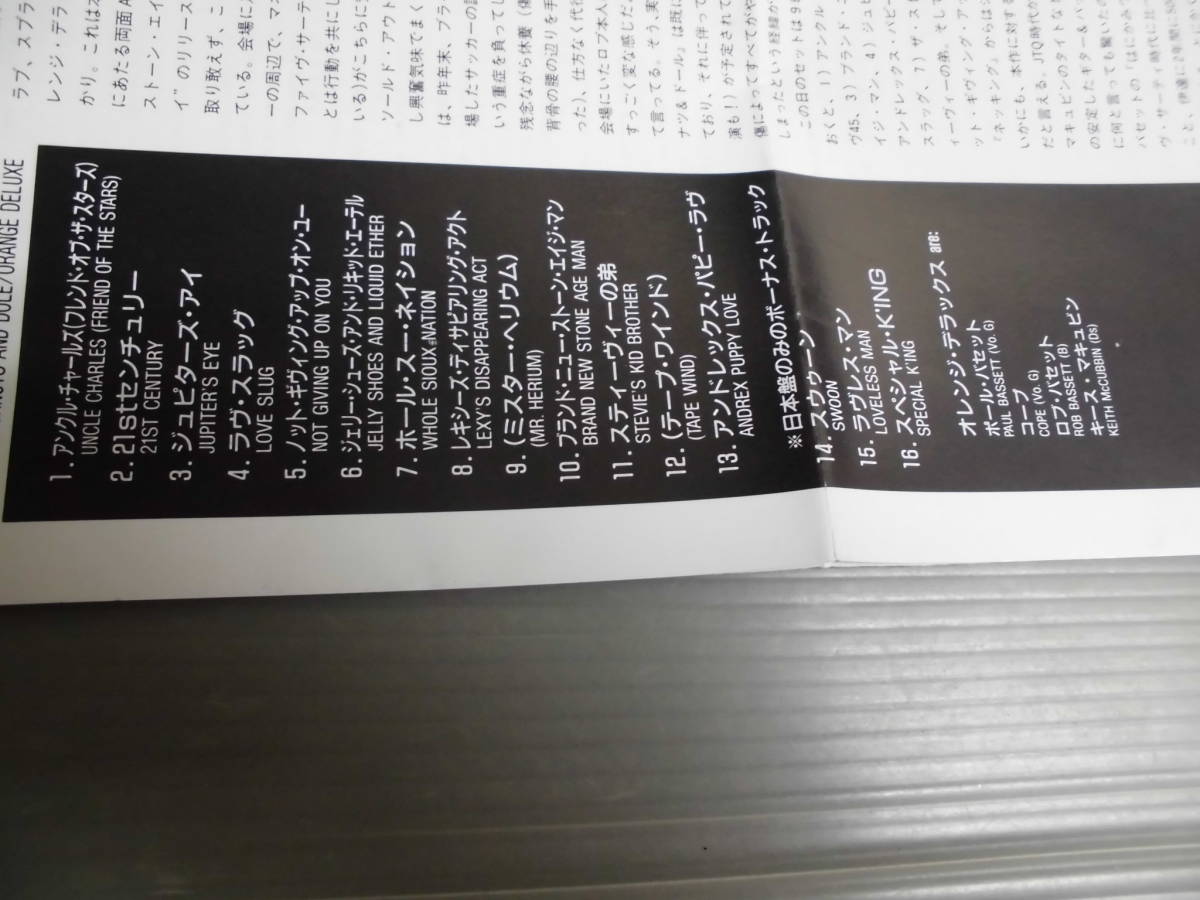 ラブ、スプラ
レンジ・デラ
かり。これは
にあたる両面
ストーン・エイ
イ"のリリース
取り敢えず、こ
ている。会場に
ーの周辺で、マ
ファイヴ・サーテ
とは行動を共にし
いる)がこちらに
ソールド・アウト
し興奮気味でまく
は、昨年末、ブラ
場したサッカーの
いう重症を負ってし
残念ながら休養(傷
背骨の腰の辺りを手
った)、仕方なく代
会場にいたロブ本人
すっごく変な感じだ
て言ってる。そう、実
ナツ&ドール』は既に
ており、それに伴って
演も!)が予定されて
傷によってすべてがや
しまったという経緯か
この日のセットは
おくと、1)アンクル
ヴ45、3)ブランド・ニ
イジ・マン、4)ジュビ
アンドレックス・パピー
スラッグ、7)ザ・ス
ィーヴィーの弟。そし
ット・ギヴィング・アッ
『ネッキング』からは
いかにも、本作に対する
だと言える。JTQ時代か
マキュビンのタイトな
の安定したギター&バッ
に何と言っても驚いたの
バセットの「はにかみ
ヴ・サーティ時代に比
こと。伊達に2年間に
AND DOLE/ORANGE DELUXE
1. アンクル・チャールズ(フレンド・オブ・ザ・スターズ)
UNCLE CHARLES (FRIEND OF THE STARS)
2. 21stセンチュリー
21ST CENTURY
3. ジュピターズ・アイ
JUPITER'S EYE
4. ラヴ・スラッグ
LOVE SLUG
5. ノット・ギヴィング・アップ・オン・ユー
NOT GIVING UP ON YOU
6. ジェリー・シューズ・アンド・リキッド・エーテル
JELLY SHOES AND LIQUID ETHER
7. ホール・スー・ネイション
WHOLE SIOUX NATION
8. レキシーズ・ディサピアリング・アクト
LEXY'S DISAPPEARING ACT
9. (ミスター・ヘリウム)
(MR. HERIUM)
10. ブランド・ニュー・ストーン・エイジ・マン
BRAND NEW STONE AGE MAN
11. スティーヴィーの弟
STEVIE'S KID BROTHER
12. (テープ・ワインド)
(TAPE WIND)
13. アンドレックス・パピー・ラヴ
ANDREX PUPPY LOVE
※日本盤のみのボーナス・トラック
14. スウゥーン
SWOON
15. ラヴレス・マン
LOVELESS MAN
16. スペシャル・K'ING
SPECIAL K'ING
オレンジ・デラックス are:
ポール・バセット
PAUL BASSETT (Vo. G)
コープ
COPE (Vo. G)
ロブ・バセット
ROB BASSETT (B)
キース・マキュビン
KEITH McCUBBIN (Ds)